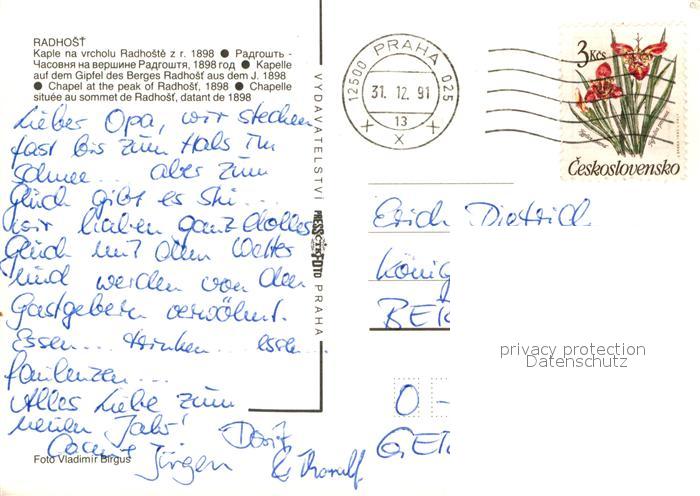 RADHOŠŤ
Kaple na vrcholu Radhoště z r. 1898 ● Радгошть -
Часовня на вершине Радгоштя, 1898 год ● Kapelle
auf dem Gipfel des Berges Radhošť aus dem J. 1898
● Chapel at the peak of Radhošť, 1898 ● Chapelle
située au sommet de Radhošť, datant de 1898
Lieber Opa, wir stecken
fast bis zum Hals im
Schnee... aber zum
Glück gibt es Ski...
wir haben ganz dolles
Glück mit dem Wetter
und werden von den
Gastgebern verwöhnt.
Essen... trinken... essen...
faulenzen...
Alles Liebe zum
neuen Jahr!
Dorit
Jürgen
& Thoralf
Foto Vladimír Birgus
VYDAVATELSTVÍ PRESSFOTO PRAHA
PRAHA 025
12500
31. 12. 91
13
3 Kčs
Československo
Erich Dietrich
König
BER
O -
GER
privacy protection
Datenschutz